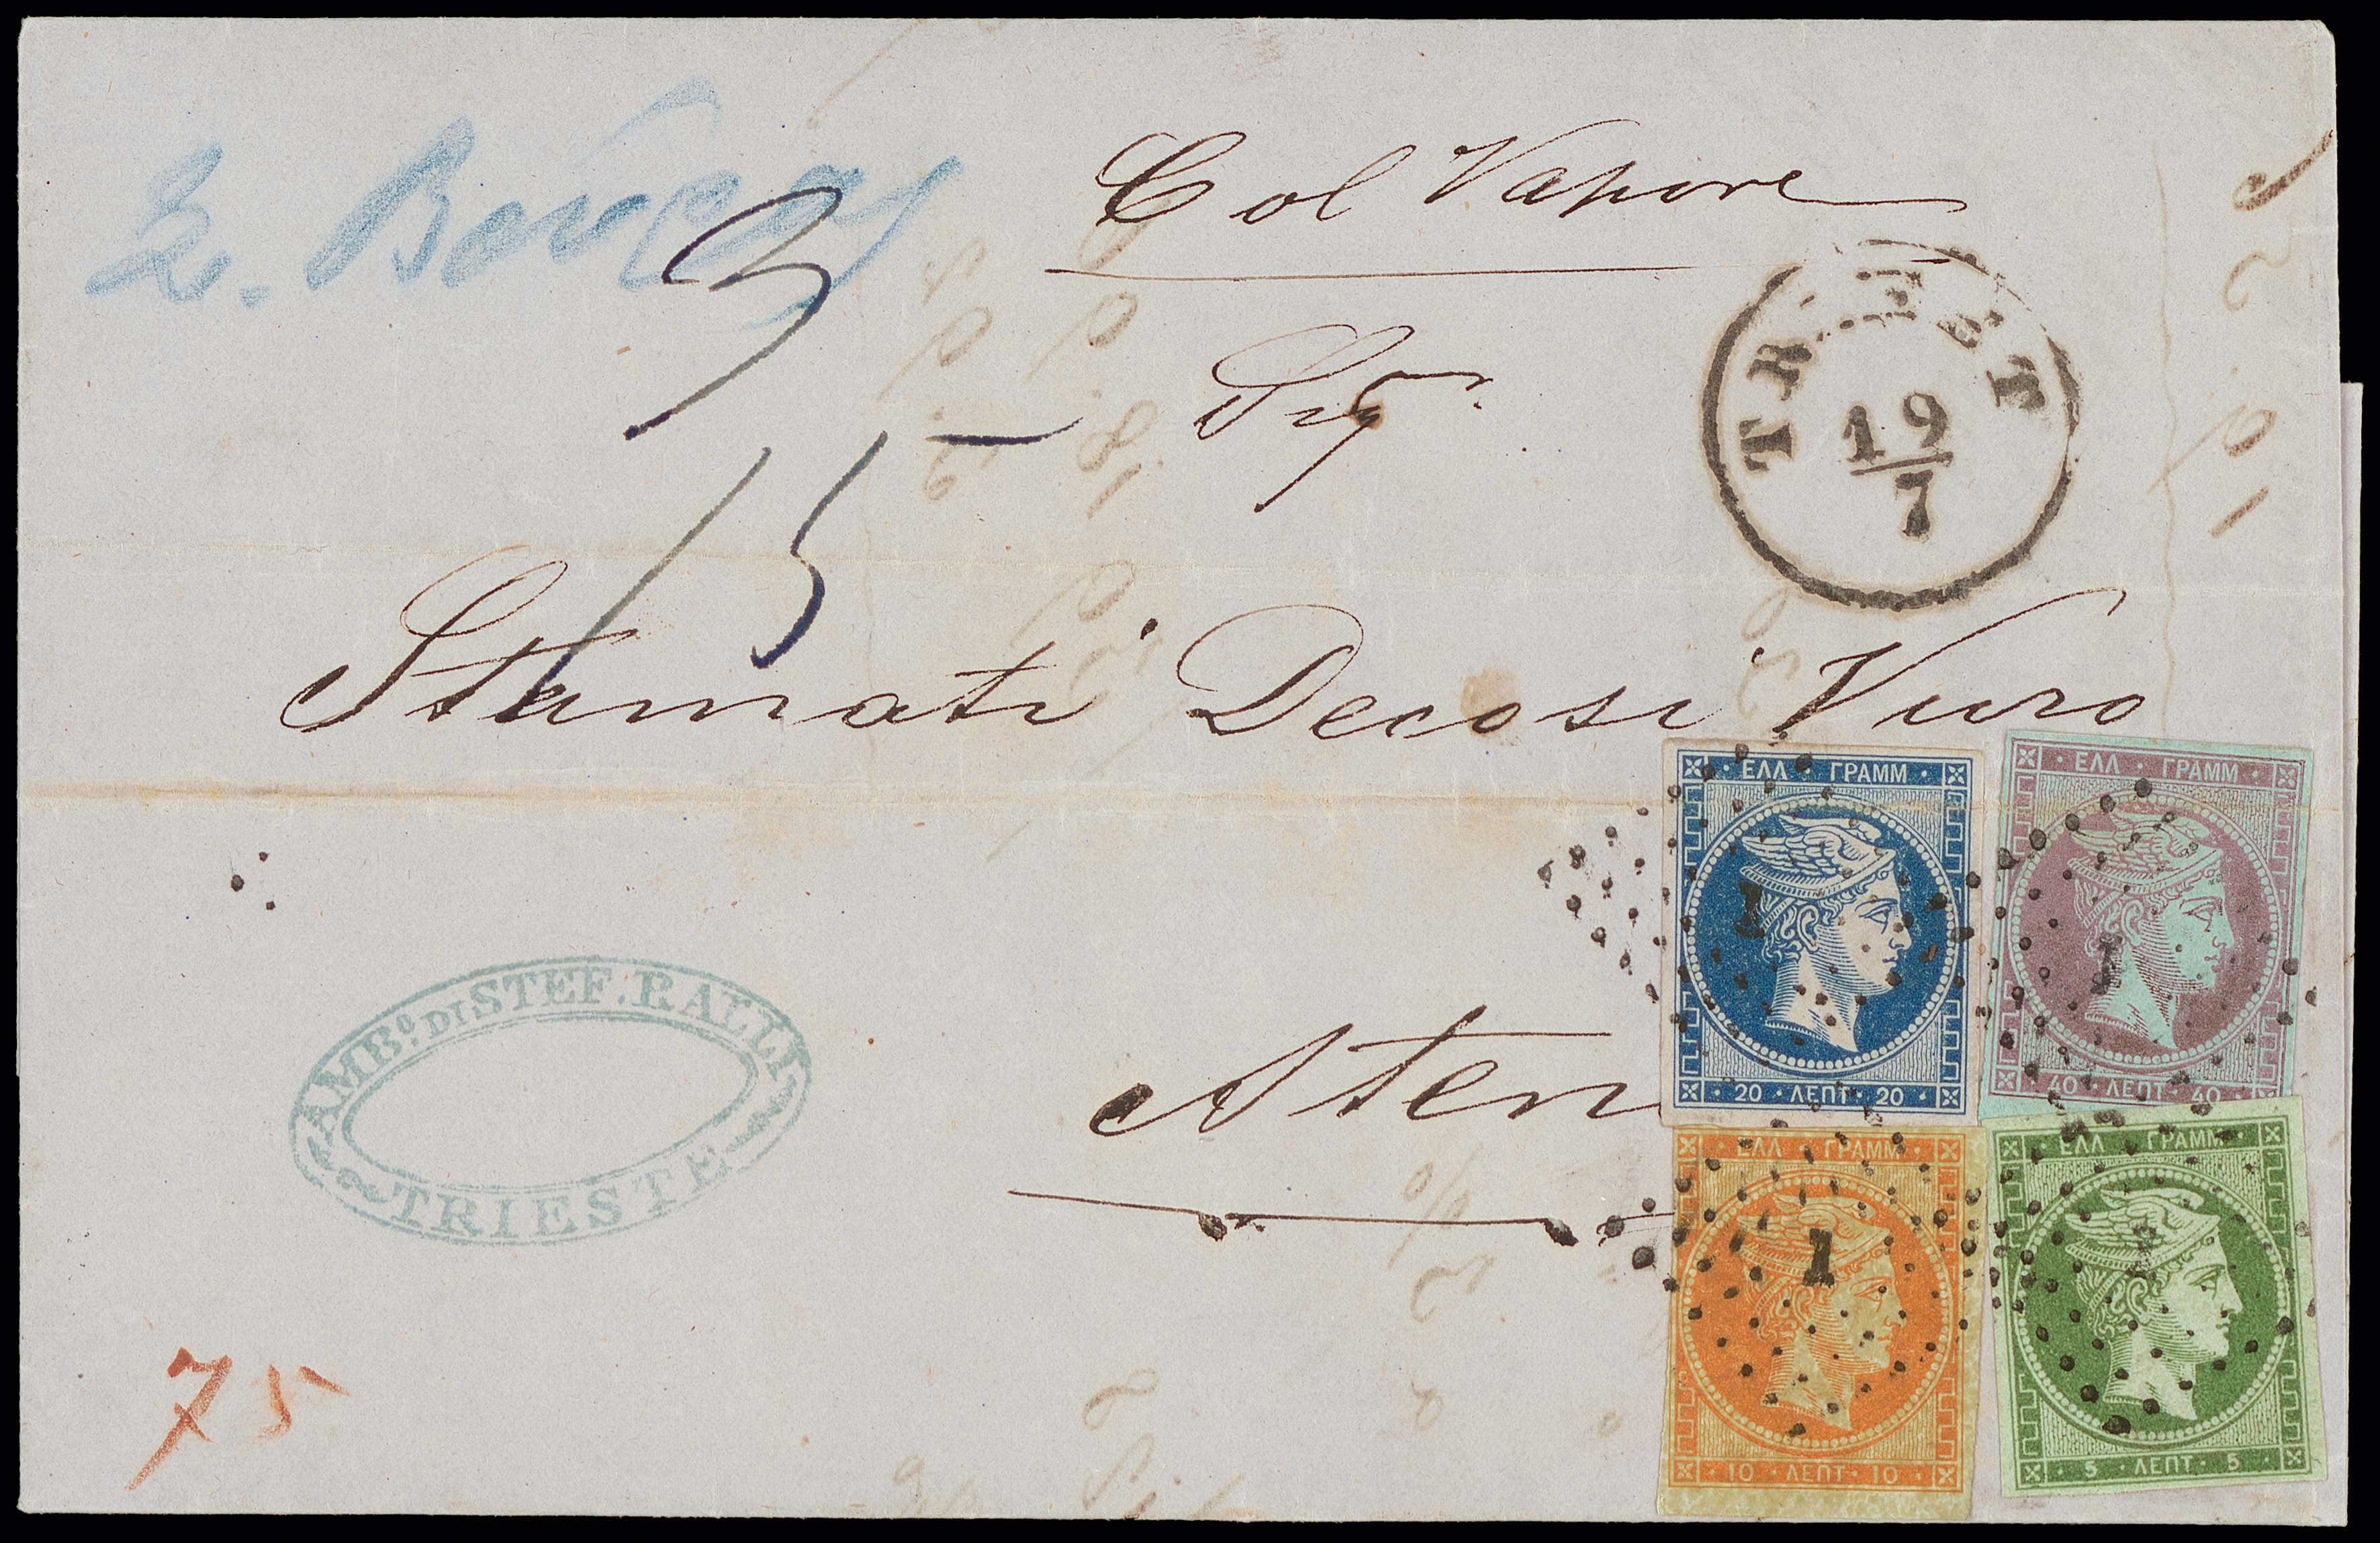 Col Vapore
TRIEST
19
7
Sigr.
15
Stamati Decosi Vuro
Aten
AMBO. DI STEF. RALLI
TRIESTE
75
ΕΛΛ · ΓΡΑΜΜ
1
20 · ΛΕΠΤ · 20
ΕΛΛ · ΓΡΑΜΜ
1
40 · ΛΕΠΤ · 40
ΕΛΛ · ΓΡΑΜΜ
1
10 · ΛΕΠΤ · 10
ΕΛΛ · ΓΡΑΜΜ
1
5 · ΛΕΠΤ · 5